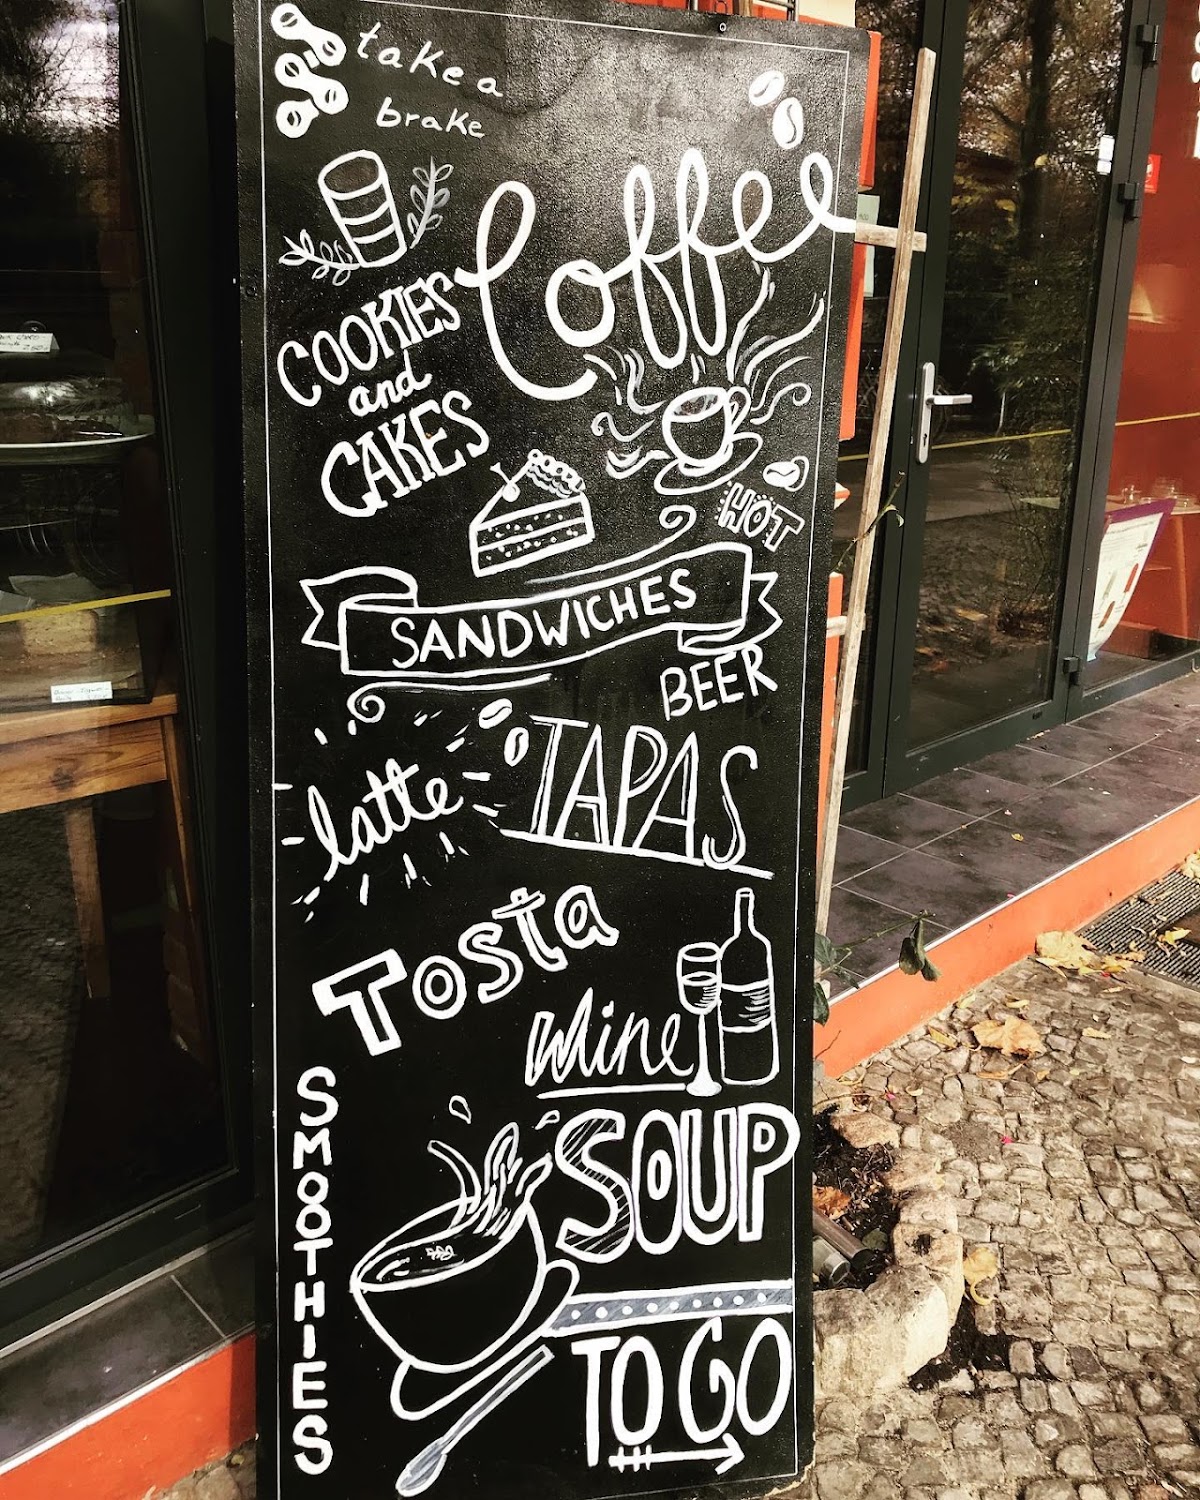 take a
brake
Coffee
COOKIES
and
CAKES
HOT
SANDWICHES
BEER
latte
TAPAS
Tosta
Wine
SMOOTHIES
SOUP
TO GO